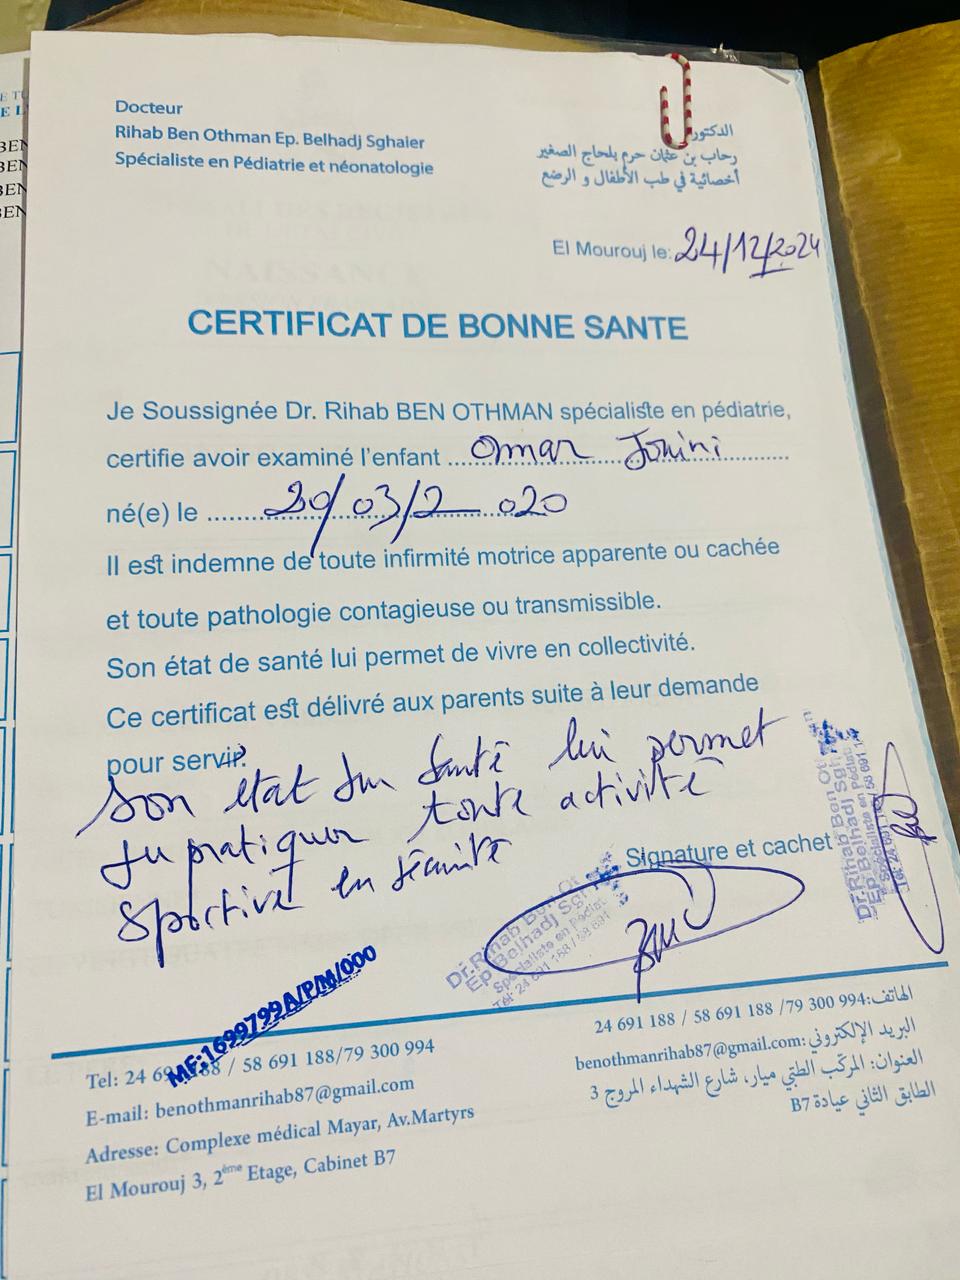 Docteur
Rihab Ben Othman Ep. Belhadj Sghaier
Spécialiste en Pédiatrie et néonatologie
الدكتورة
رحاب بن عثمان حرم بلحاج الصغير
أخصائية في طب الأطفال و الرضع
El Mourouj le: 24/12/2024
CERTIFICAT DE BONNE SANTE
Je Soussignée Dr. Rihab BEN OTHMAN spécialiste en pédiatrie,
certifie avoir examiné l'enfant Omar Jouini
né(e) le 29/03/2020
Il est indemne de toute infirmité motrice apparente ou cachée
et toute pathologie contagieuse ou transmissible.
Son état de santé lui permet de vivre en collectivité.
Ce certificat est délivré aux parents suite à leur demande
pour servir.
Son etat du santé lui permet
du pratiquer toute activité
sportive en
Signature et cachet
Dr. Rihab Ben Ot
Ep Belhadj Sgh
Spécialiste en Pédiat
Tél: 24 691 188 / 58 691
Dr. Rihab Ben Ot
Ep Belhadj Sgh
Spécialiste en Pédiat
MF:1699799A/P/M/000
Tel: 24 69 188 / 58 691 188/79 300 994
E-mail: benothmanrihab87@gmail.com
Adresse: Complexe médical Mayar, Av.Martyrs
El Mourouj 3, 2ème Etage, Cabinet B7
الهاتف:994 300 79/ 188 691 58 / 188 691 24
البريد الإلكتروني:benothmanrihab87@gmail.com
العنوان: المركب الطبي ميار، شارع الشهداء المروج 3
الطابق الثاني عيادة B7